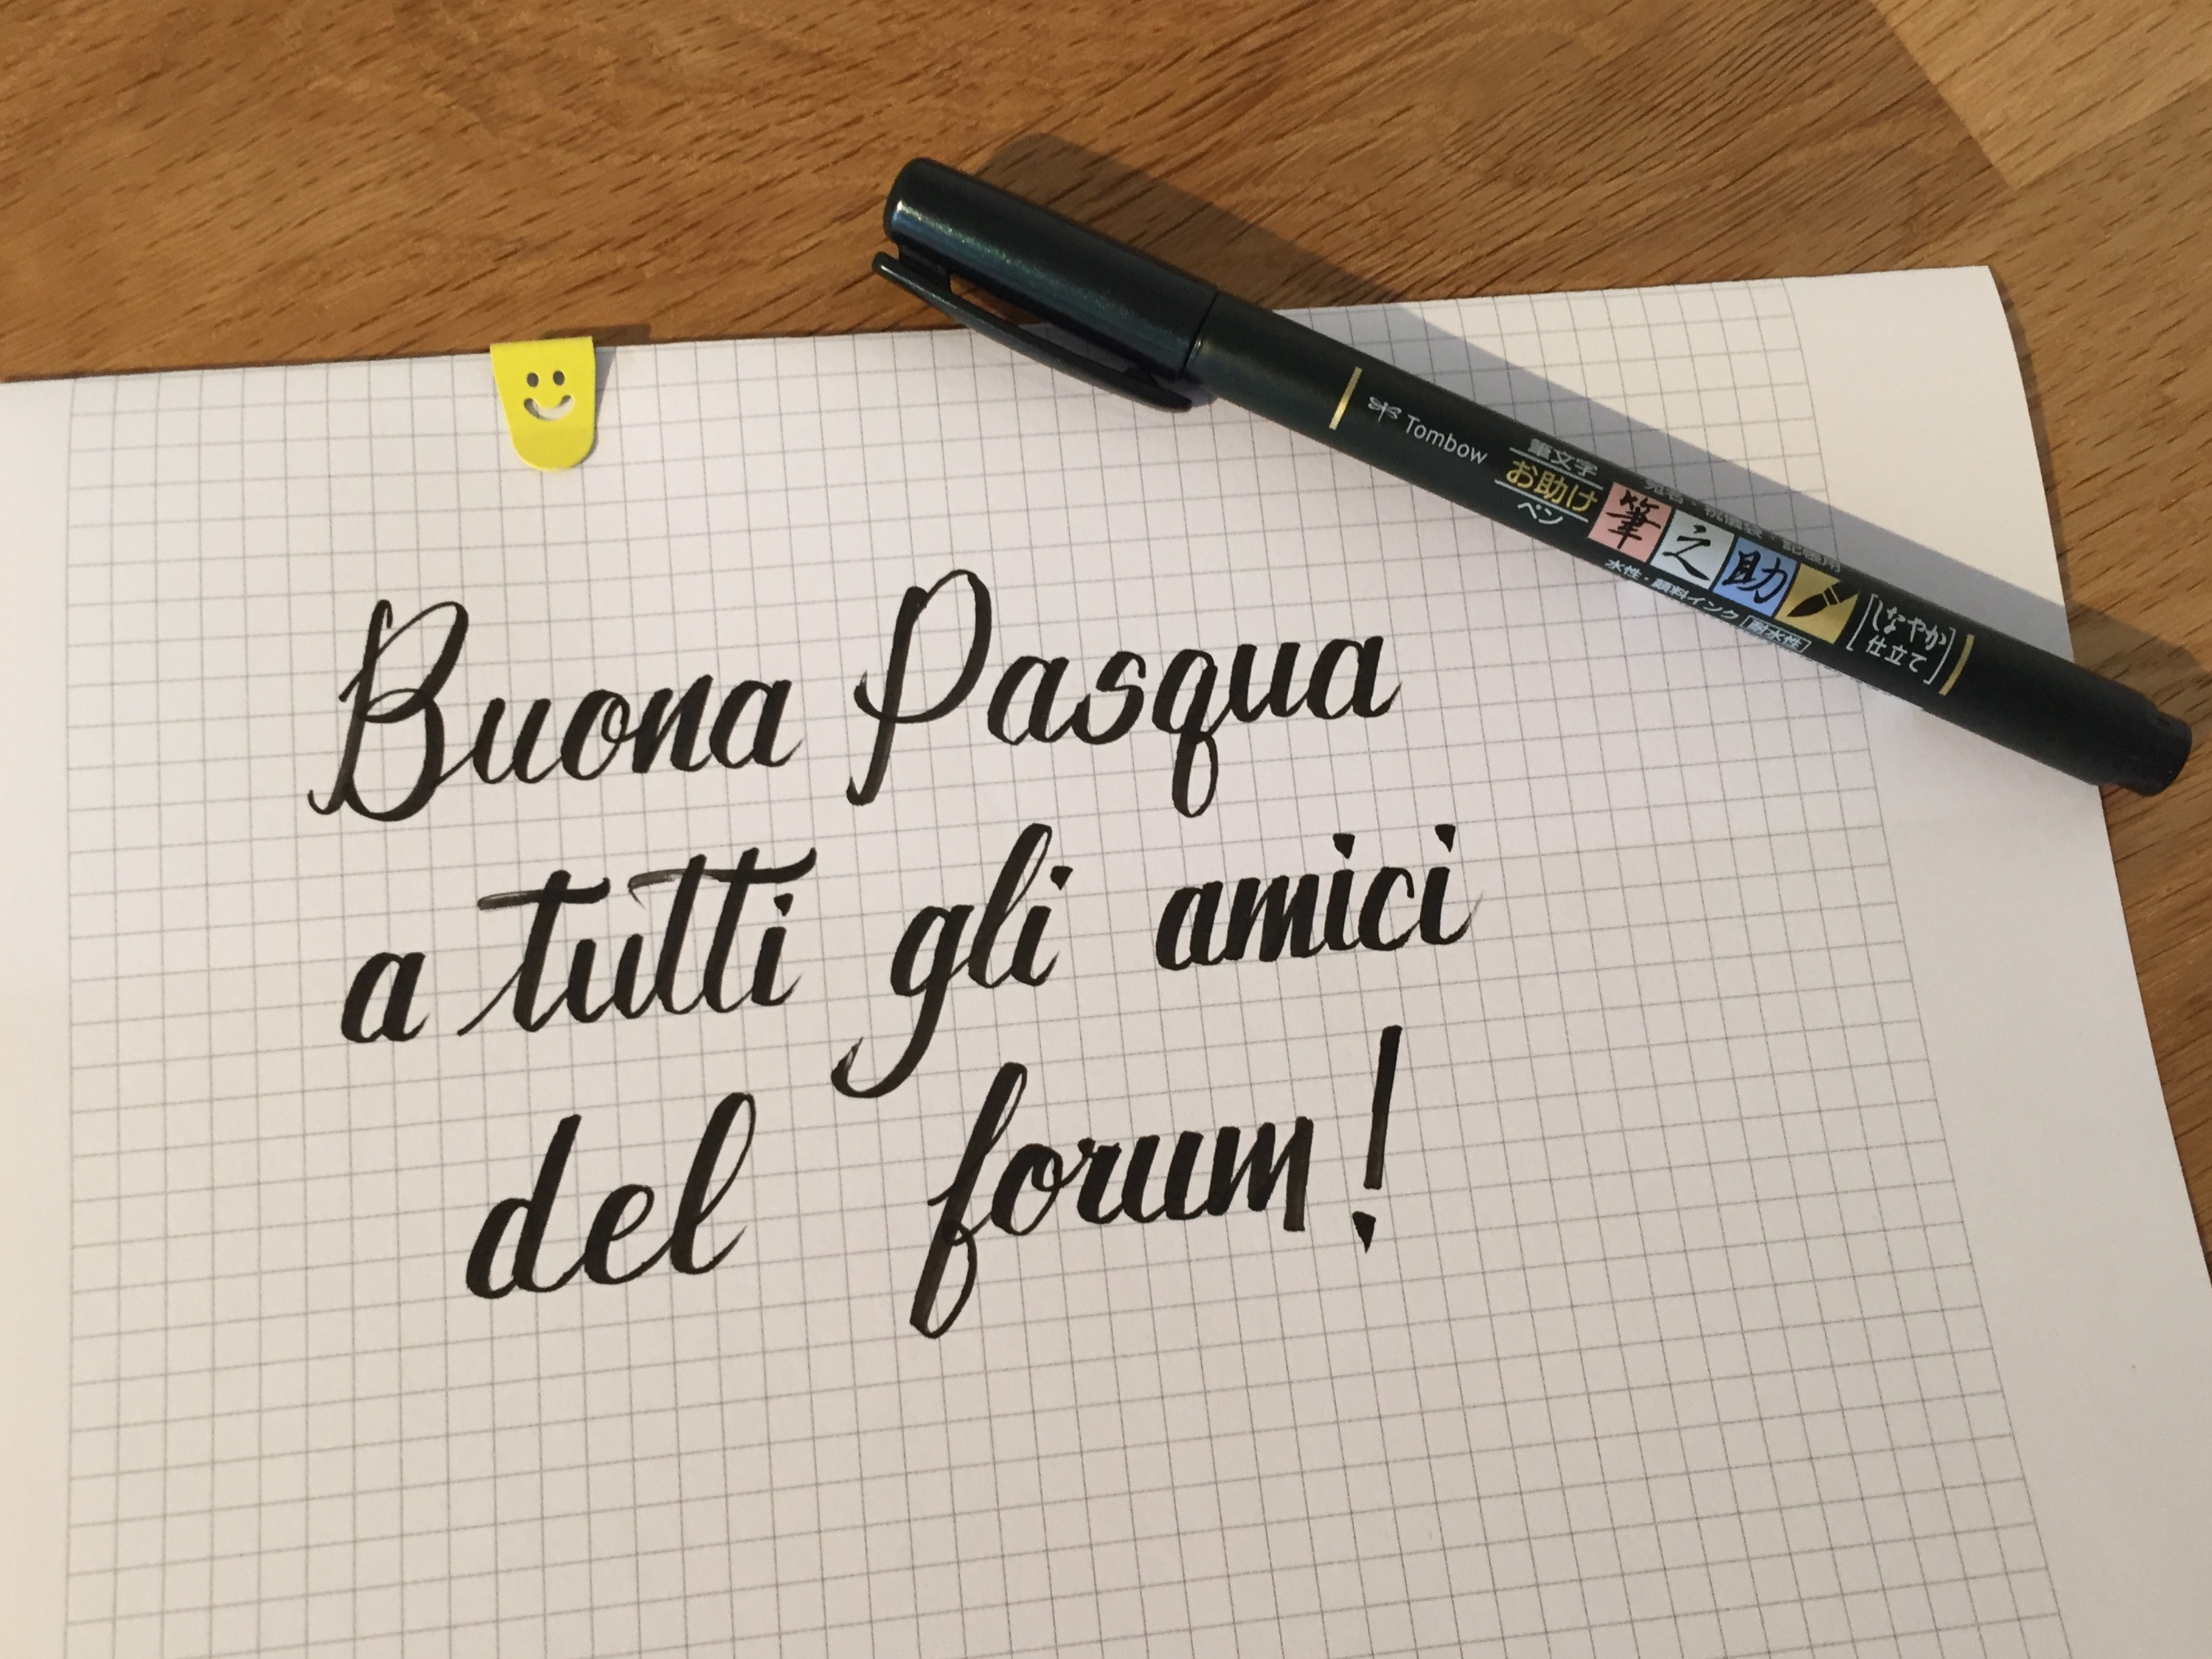 Tombow
筆文字
お助け
ペン
筆之助
水性・顔料インク[耐水性]
[しなやか
仕立て]
Buona Pasqua
a tutti gli amici
del forum!